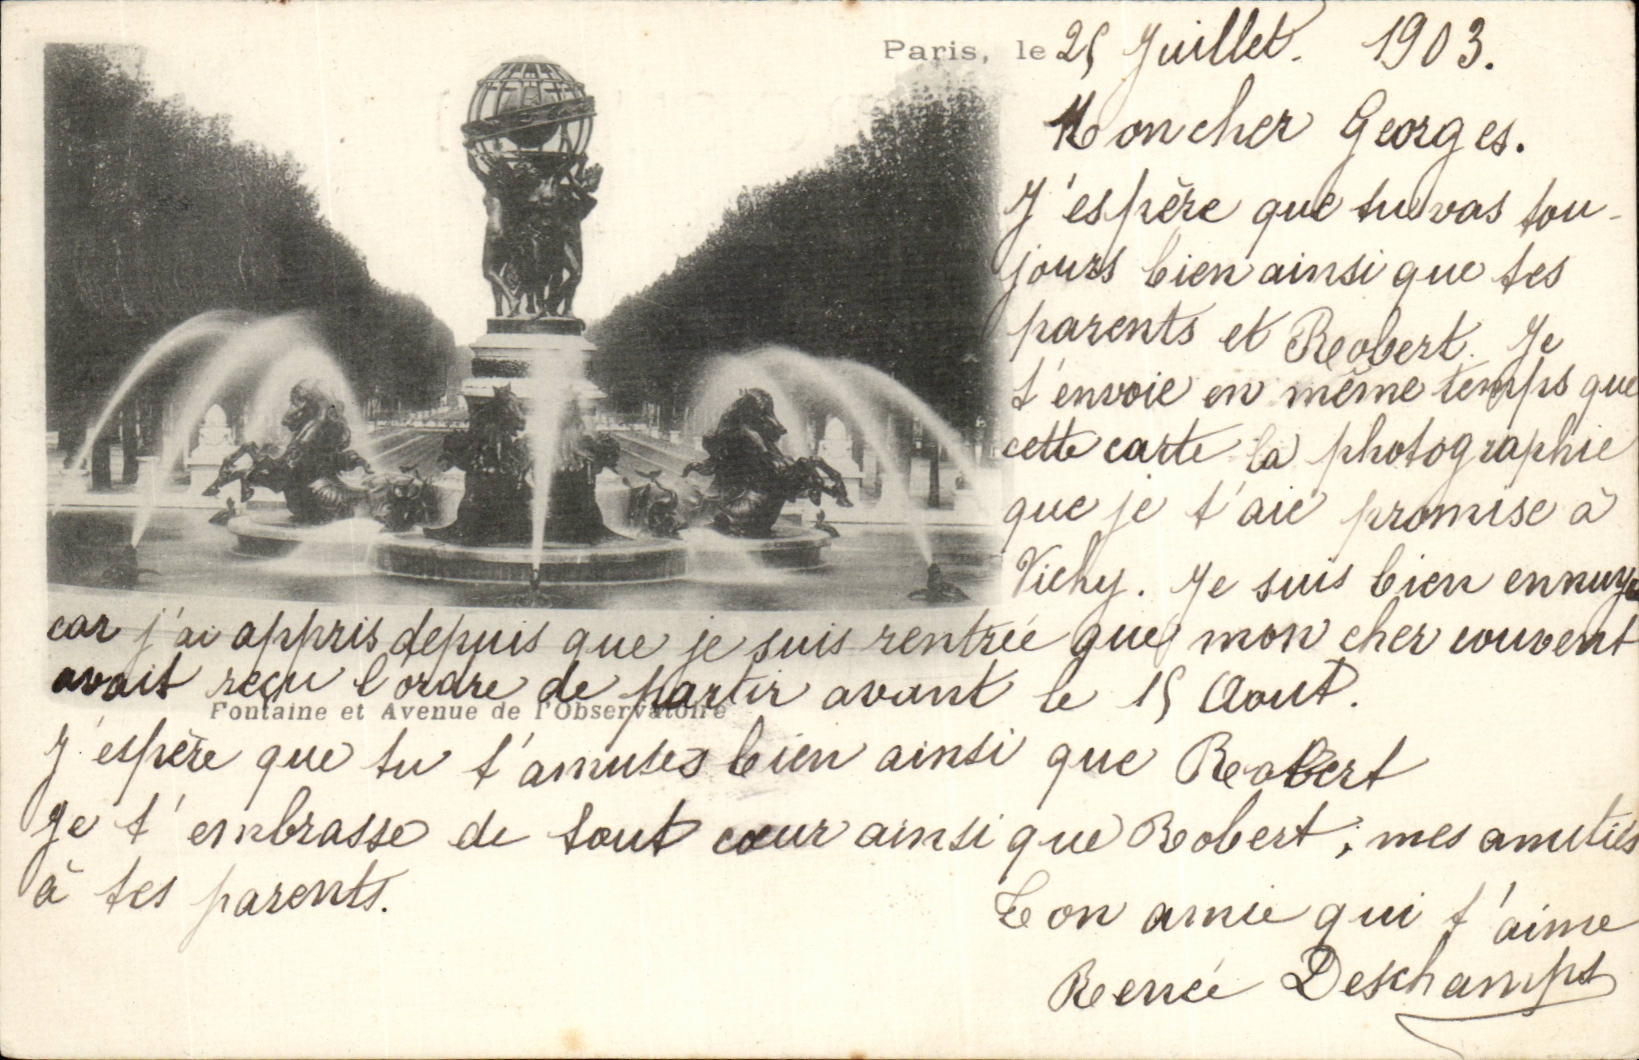 Paris, le 25 Juillet. 1903.
Mon cher Georges.
J'espère que tu vas tou-
jours bien ainsi que tes
parents et Robert. Je
t'envoie en même temps que
cette carte la photographie
que je t'aie promise à
Vichy. Je suis bien ennuyée
car j'ai appris depuis que je suis rentrée que mon cher couvent
avait reçu l'ordre de partir avant le 15 Août.
Fontaine et Avenue de l'Observatoire
J'espère que tu t'amuses bien ainsi que Robert
Je t'embrasse de tout cœur ainsi que Robert ; mes amitiés
à tes parents.
Ton amie qui t'aime
Renée Deschamps